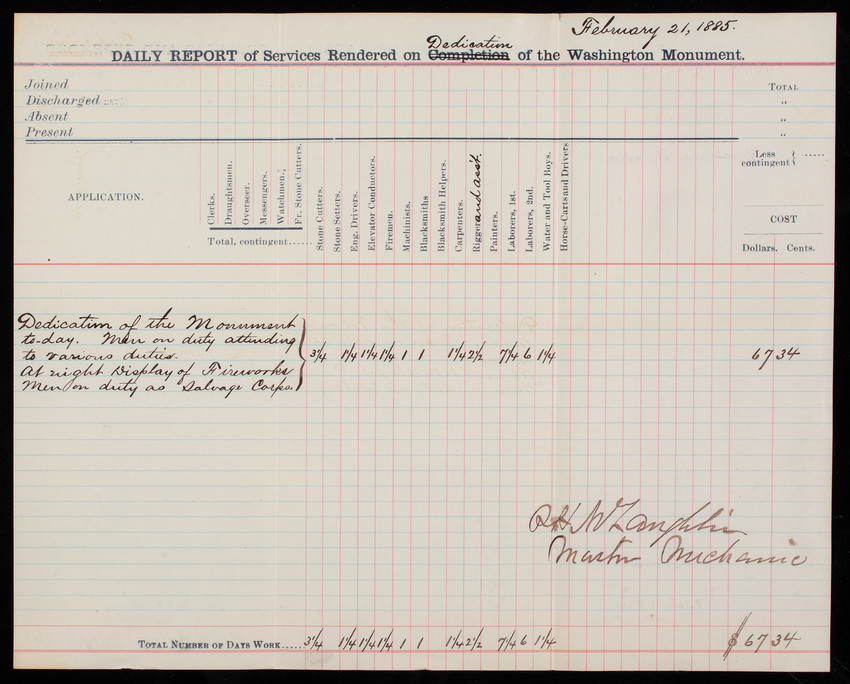 February 21, 1885.
Dedication
DAILY REPORT of Services Rendered on Completion of the Washington Monument.
Joined
Discharged
Absent
Present
TOTAL
"
"
"
Less contingent
APPLICATION.
Clerks.
Draughtsmen.
Overseer.
Messengers.
Watchmen.
Fr. Stone Cutters.
Total, contingent......
Stone Cutters.
Stone Setters.
Eng. Drivers.
Elevator Conductors.
Firemen.
Machinists.
Blacksmiths
Blacksmith Helpers.
Carpenters.
Rigger and asst.
Painters.
Laborers, 1st.
Laborers, 2nd.
Water and Tool Boys.
Horse-Carts and Drivers
COST
Dollars. Cents.
Dedication of the Monument
to-day. Men on duty attending
to various duties. 3/4 1 1/4 1 1/4 1 1/4 1 1 1 1/4 2 1/2 7 1/4 6 1 1/4 67 34
At night Display of Fireworks
Men on duty as Salvage Corps.
McLaughlin
Master Mechanic
TOTAL NUMBER OF DAYS WORK..... 3/4 1 1/4 1 1/4 1 1/4 1 1 1 1/4 2 1/2 7 1/4 6 1 1/4 $ 67 34